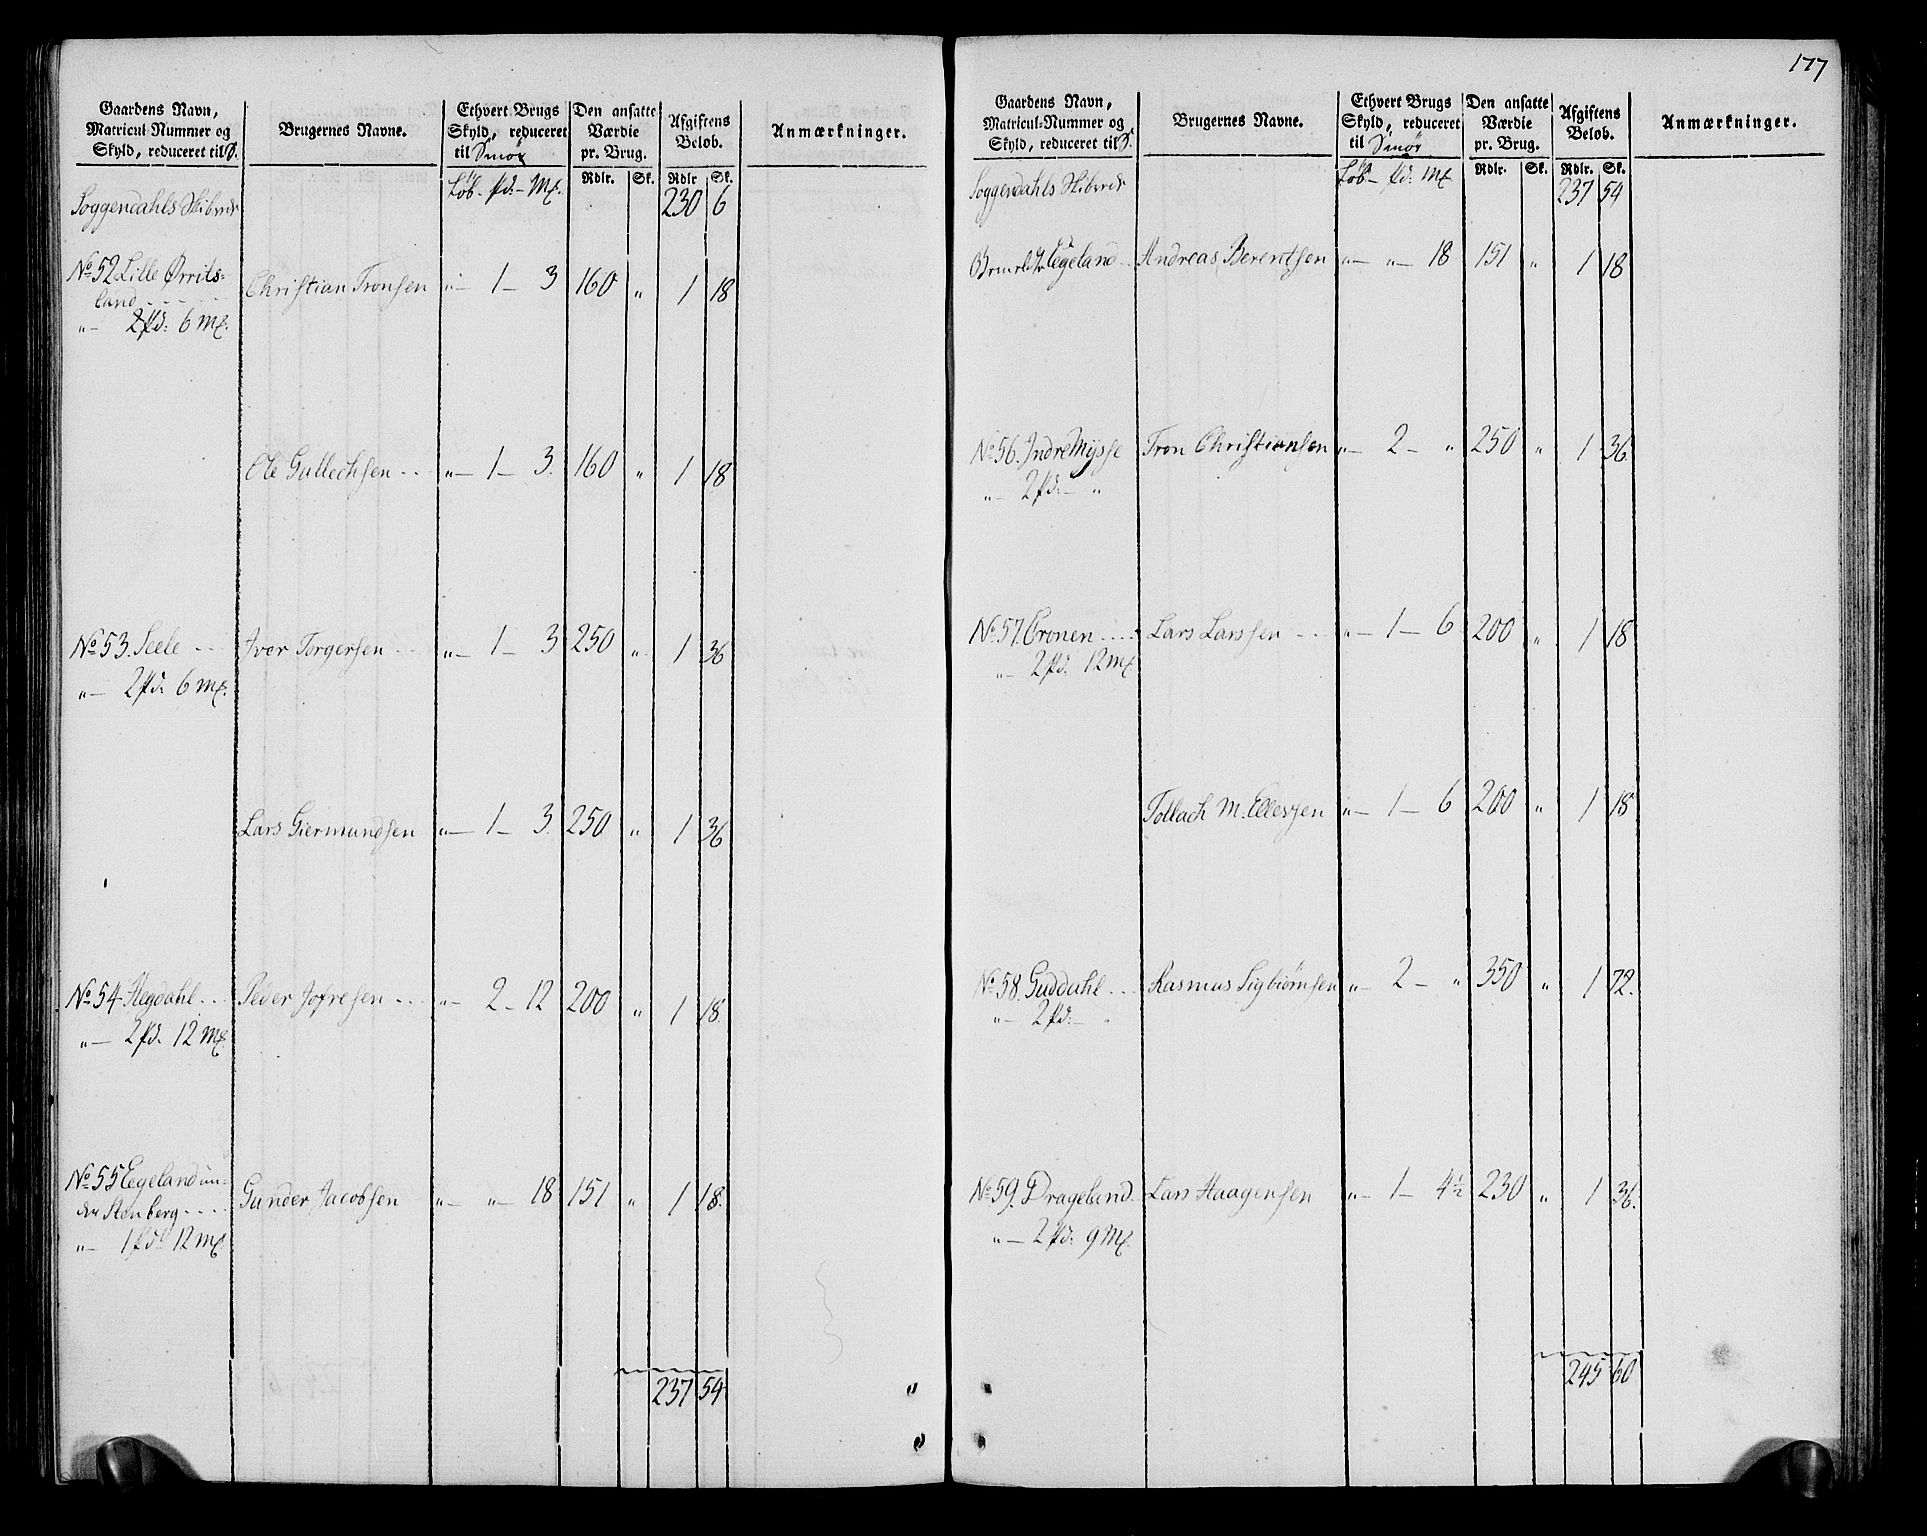 Gaardens Navn, Matricul-Nummer og Skyld, reduceret til
Brugernes Navne.
Ethvert Brugs Skyld, reduceret til Smör
Den ansatte Værdie pr. Brug.
Afgiftens Beløb.
Anmærkninger.
Løb - pd: - Mk.
Rdlr. Sk. Rdlr Sk.
Soggendahls Skibrede 230 6
No 52 Lille Ørrits=
land - - - - - Christian Tronsen " - 1 - 3 160 " 1 18
" - 2 pd: 6 Mk.
Ole Gullechsen - - " - 1 - 3. 160 " 1 18
No 53. Seele - - Iver Torgersen - - " - 1 - 3 250 " 1 36
" - 2 pd: 6 Mk.
Lars Giermundsen " - 1 - 3. 250 " 1 36
No 54. Hegdahl - - Peder Jofresen - - " - 2 - 12 200 " 1 18
" - 2 pd. 12 Mk
No 55 Egeland un=
der Stenberg - - - - Gunder Jacobsen " - " - 18 151 " 1 18.
" - 1 pd: 12 Mk
237 54
177
Gaardens Navn, Matricul-Nummer og Skyld, reduceret til
Brugernes Navne.
Ethvert Brugs Skyld, reduceret til Smör
Den ansatte Værdie pr. Brug.
Afgiftens Beløb.
Anmærkninger.
Løb - pd: Mk
Rdlr. Sk. Rdlr. Sk.
Soggendahls Skibrede 237 54
Egeland - - Andreas Berentsen " - " - 18 151 " 1 18
No 56. Indre Mysse Tron Christiansen " - 2 - " 250 " 1 36
" - 2 pd: - "
No 57. Cronen - - - - Lars Larssen - - - " - 1 - 6 200 " 1 18
" - 2 pd: 12 Mk
Tollach M. Ellessen " - 1 - 6 200 " 1 18
No 58. Guddahl - - Rasmus Sigbiørnsen " - 2 - " 350 " 1 72.
" - 2 pd: - "
No 59. Drageland. Lars Haagensen " - 1 - 4½ 230 " 1 36.
" - 2 pd: 9 Mk.
245 60